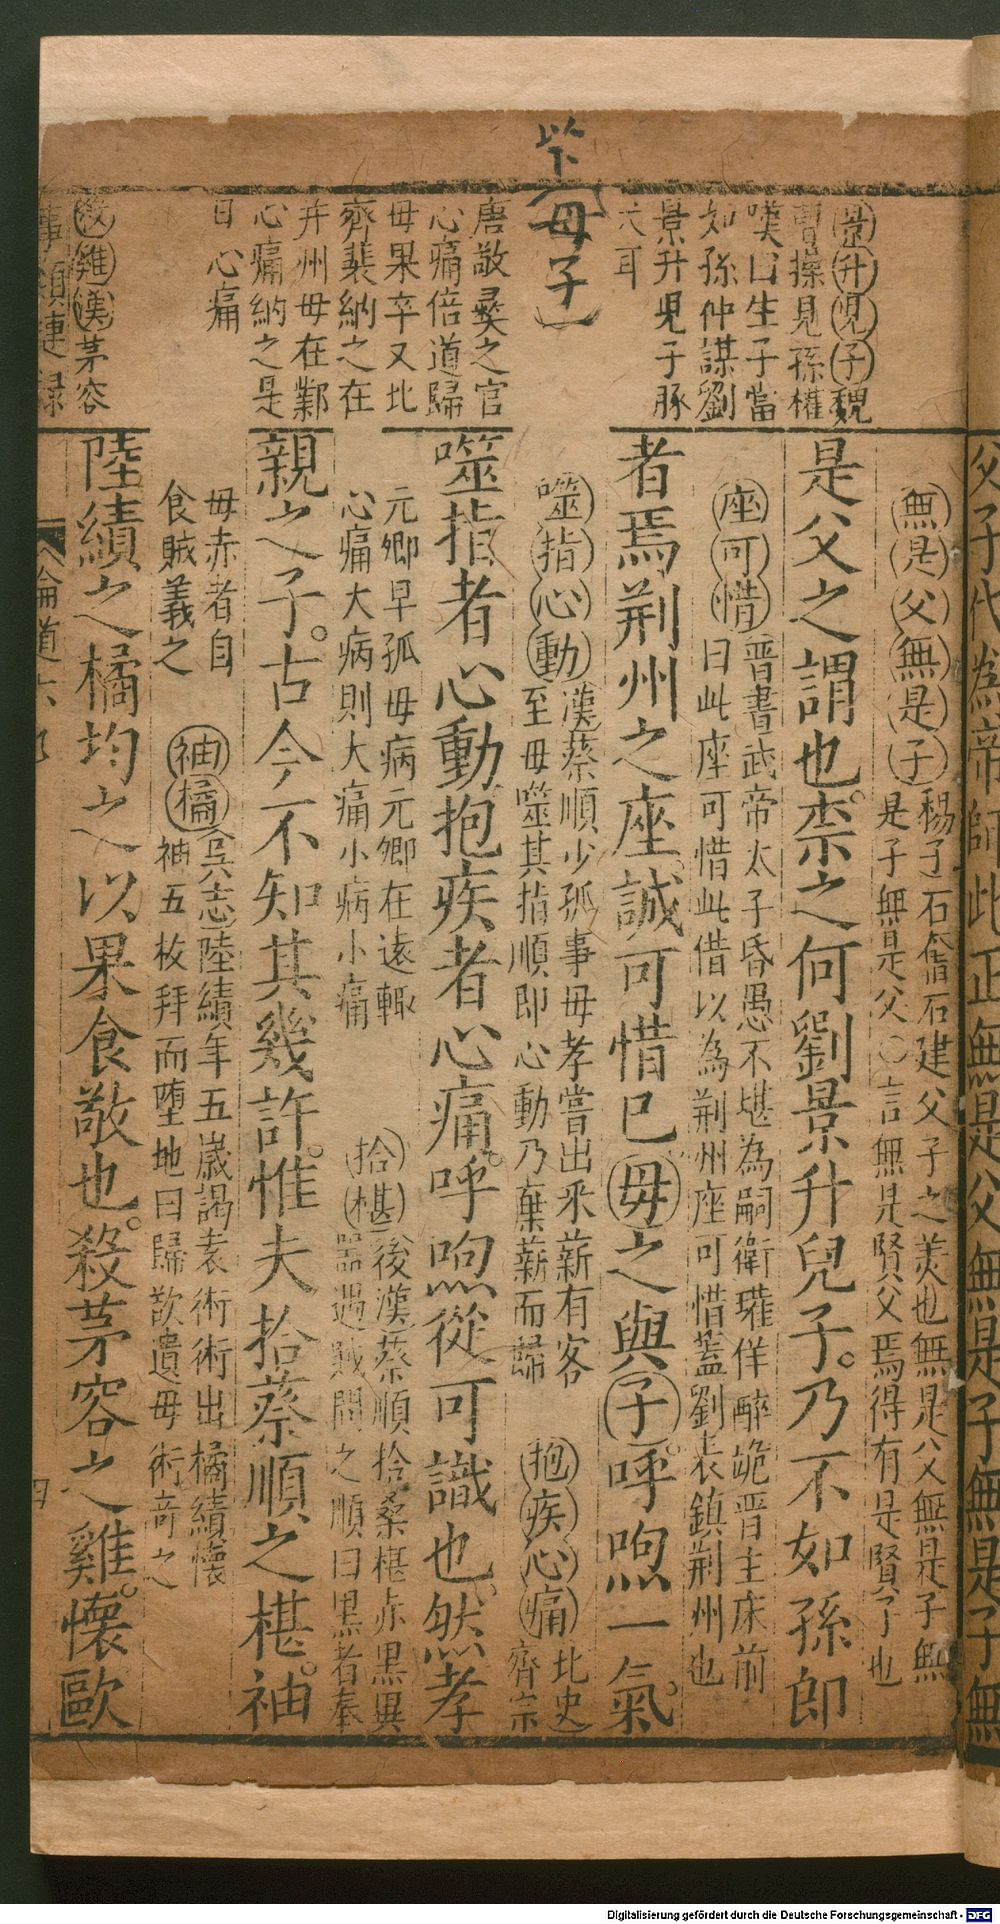 父子代為帝師此正無是父無是子無是子無
無是父無是子 楊子石奮石建父子之美也無是父無是子無
是子無是父〇言無是賢父焉得有是賢子也
是父之謂也柰之何劉景升兒子乃不如孫郎
座可惜 晋書武帝太子昏愚不堪為嗣衛瓘佯醉跪晋主床前
曰此座可惜此借以為荆州座可惜蓋劉表鎮荆州也
者焉荆州之座誠可惜已母之與子呼呴一氣
噬指心動 漢蔡順少孤事毋孝嘗出采薪有客
至毋噬其指順即心動乃棄薪而歸
抱疾心痛 北史
齊宗
噬指者心動抱疾者心痛呼呴從可識也然孝
元卿早孤毋病元卿在遠輙
心痛大病則大痛小病小痛
拾椹 後漢蔡順拾桑椹赤黒異
器遇賊問之順曰黒者奉
親之子古今不知其幾許惟夫拾蔡順之椹袖
毋赤者自
食賊義之
袖橘 吳志陸績年五歲謁袁術術出橘績懷
袖五枚拜而墮地曰歸欲遺毋術竒之
陸績之橘均之以果食敬也殺茅容之雞懷歐
景升児子魏
曹操見孫權
嘆曰生子當
如孫仲謀劉
景升児子豚
犬耳
母子
唐敬彛之官
心痛倍道歸
毋果卒又北
齊裴納之在
并州毋在鄴
心痛納之是
日心痛
殺雞漢茅容
事類連録
倫道
四
Digitalisierung gefördert durch die Deutsche Forschungsgemeinschaft - DFG